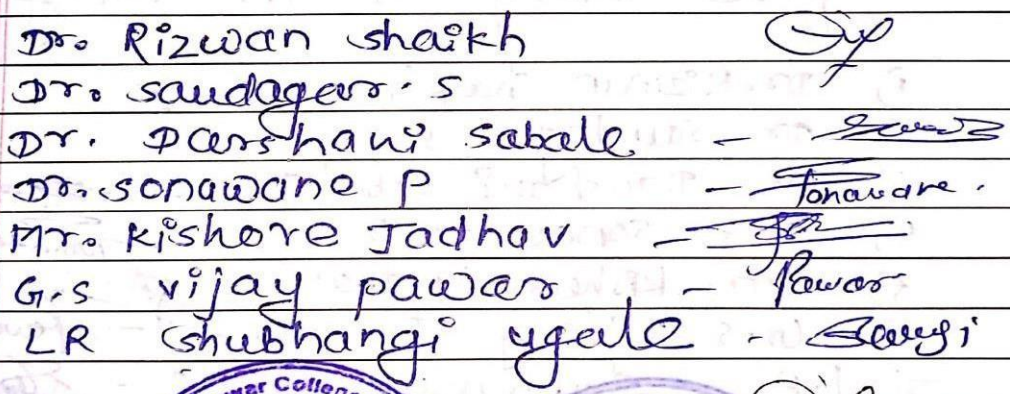 Dr. Rizwan shaikh
Dr. saudagar. S
Dr. Darshani sabale -
Dr. sonawane P - Sonawane.
Mr. Kishore Jadhav -
G.S vijay pawar - Pawar
LR shubhangi ugale -
war College